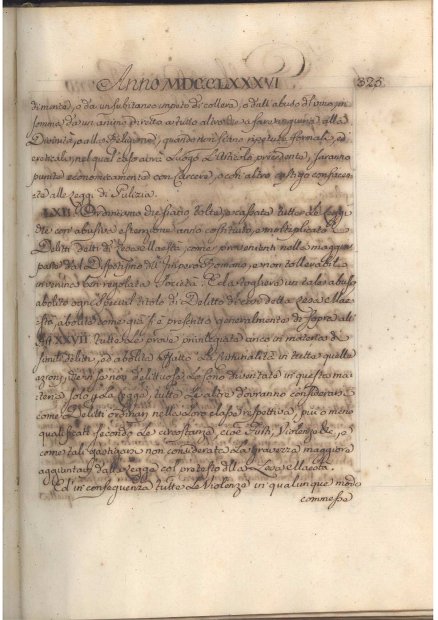 Anno MDCCLXXXVI 325
di mente, o da un subitaneo impeto di collera, o dall'abuso di vino, in
somma da un animo diretto a tutto altro che a fare ingiuria alla
Divinità, o alla Religione, quando non siano ripetute formali, ed
ereticali, nel qual caso avrà luogo l'Articolo precedente, saranno
punite economicamente con Carcere, o con altro castigo conface
te alle Leggi di Pulizia.
LXII. Ordiniamo che siano tolte, e cassate tutte le Leggi
che con abusiva estensione anno costituiti, e moltiplicati i
Delitti detti di Lesa Maestà, come provenienti nella maggior
parte dal Dispotismo dell'Impero Romano, e non tollerabili
in veruna ben regolata Società: E a togliere un tale abuso,
abolito ogni special titolo di Delitto di così detta Lesa Mae
stà, abolite come già si è prescritto generalmente di sopra all'
§. XXVII tutte le prove privilegiate anco in materia di
simili delitti, ed abolita affatto la criminalità in tutte quelle
azioni, che in se non delittuose lo sono diventate in questa ma
teria solo per Legge, tutte le altre dovranno considerarsi
come Delitti ordinari nella loro classe respettiva, più o meno
qualificati secondo le circostanze, cioè Furti, Violenze &c, e
come tali gastigarsi non considerata la gravezza maggiore
aggiuntavi dalla Legge col pretesto della Lesa Maestà.
Ed in conseguenza tutte le Violenze in qualunque modo
commesse